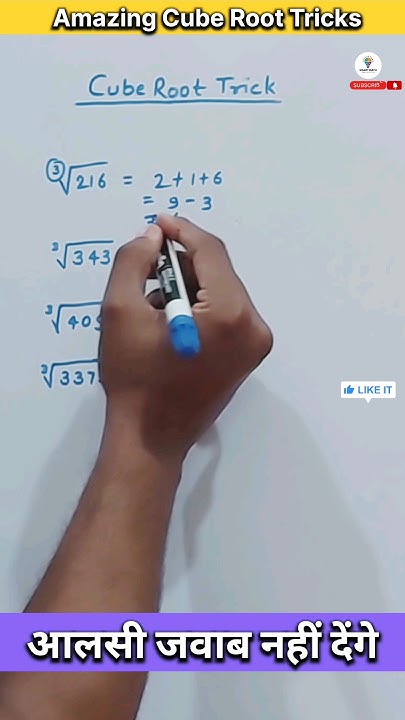 Amazing Cube Root Tricks
SUBSCRIBE
Cube Root Trick
∛216 = 2+1+6
= 9-3
=
∛343
∛405
∛337
LIKE IT
आलसी जवाब नहीं देंगे